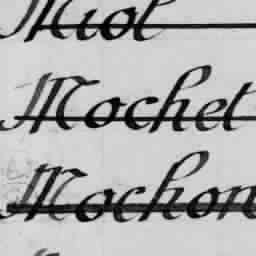 Miol
Mochet
Mochon